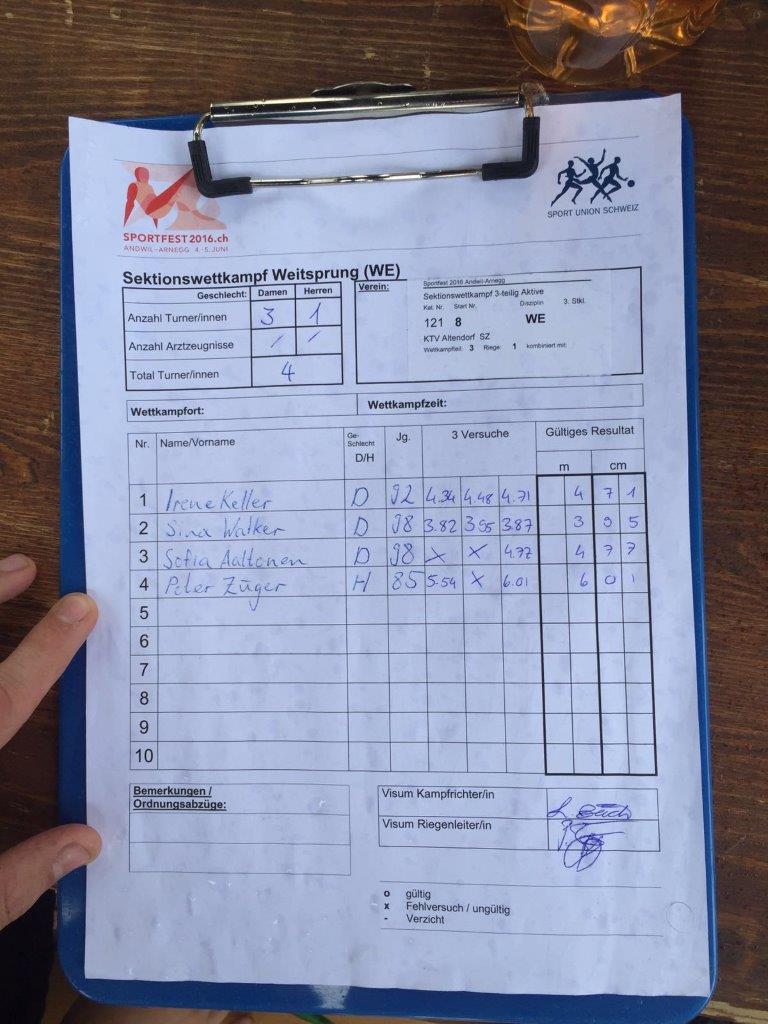 SPORTFEST2016.ch
ANDWIL-ARNEGG 4.-5.JUNI
SPORT UNION SCHWEIZ
Sektionswettkampf Weitsprung (WE)
Geschlecht: Damen Herren
Anzahl Turner/innen 3 1
Anzahl Arztzeugnisse / /
Total Turner/innen 4
Verein:
Sportfest 2016 Andwil-Arnegg
Sektionswettkampf 3-teilig Aktive
Kat. Nr. Start Nr. Disziplin 3. Stkl.
121 8 WE
KTV Altendorf SZ
Wettkampfteil: 3 Riege: 1 kombiniert mit:
Wettkampfort: Wettkampfzeit:
Nr. Name/Vorname Ge-schlecht D/H Jg. 3 Versuche Gültiges Resultat
m cm
1 Irene Keller D 92 4.34 4.48 4.71 4 7 1
2 Sina Walker D 98 3.82 3.95 3.87 3 9 5
3 Sofia Aaltonen D 98 x x 4.77 4 7 7
4 Peter Züger H 85 5.54 x 6.01 6 0 1
5
6
7
8
9
10
Bemerkungen /
Ordnungsabzüge:
Visum Kampfrichter/in
Visum Riegenleiter/in
o gültig
x Fehlversuch / ungültig
- Verzicht